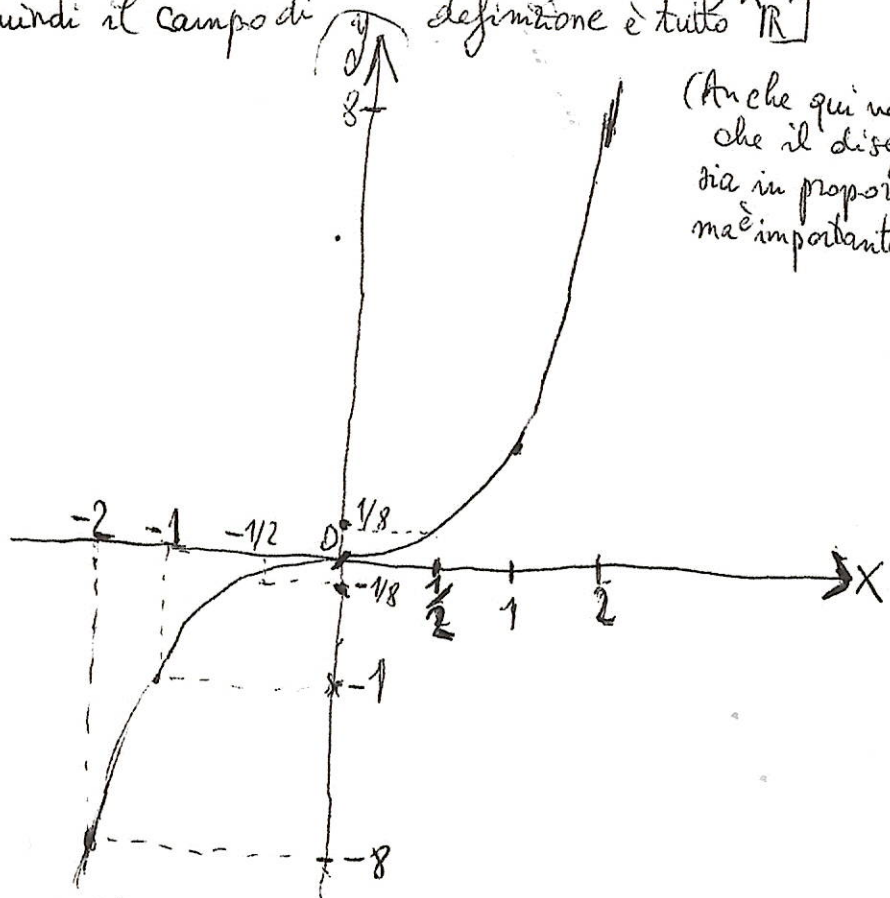 uindi il campo di definizione è tutto ℝ]
(Anche qui
che il dise
sia in propor
ma è importante
y
8
-2 -1 -1/2 0 1/8
-1/8 1/2 1 2 X
-1
-8